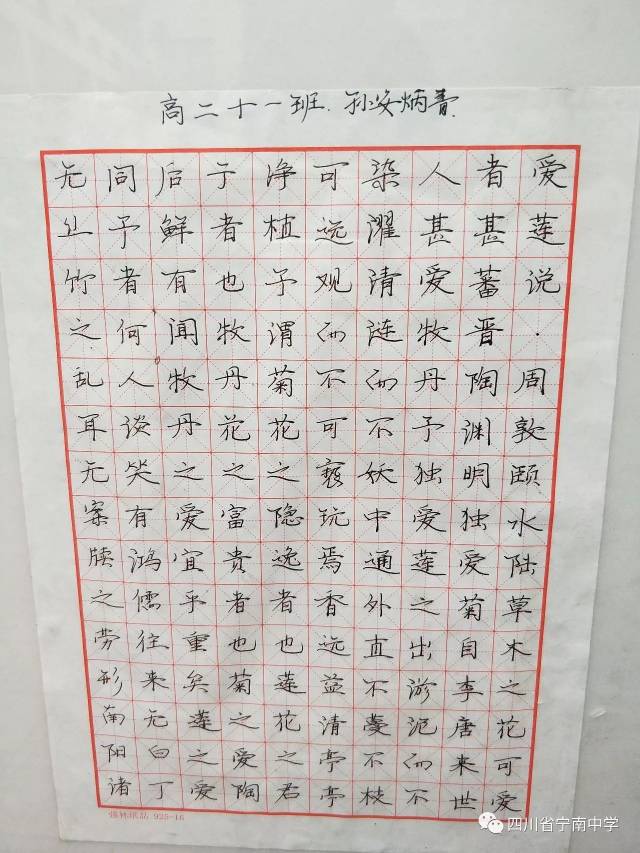 高二十一班.
爱莲说·周敦颐水陆草木之花可爱
者甚蕃晋陶渊明独爱菊自李唐来世
人甚爱牧丹予独爱莲之出淤泥而不
染濯清涟而不妖中通外直不蔓不枝
可远观而不可亵玩焉香远益清亭亭
净植予谓菊花之隐逸者也莲花之君
于者也牧丹花之富贵者也菊之爱陶
后鲜有闻牧丹之爱宜乎重矣莲之爱
同予者何人谈笑有鸿儒往来无白丁
无丝竹之乱耳无案牍之劳形南阳诸
925-16
四川省宁南中学